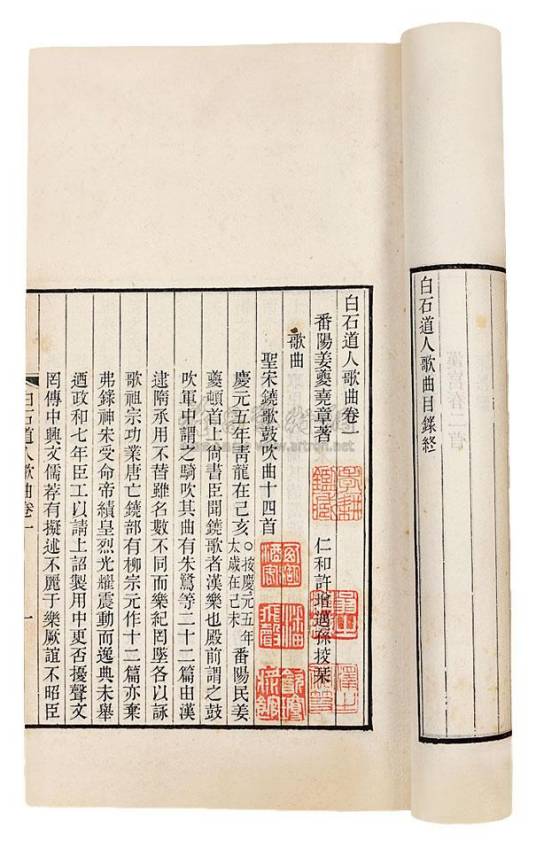 白石道人歌曲目錄終
白石道人歌曲卷一
番陽姜夔堯章著
仁和許增邁孫挍栞
歌曲
聖宋鐃歌鼓吹曲十四首
慶元五年青龍在己亥○按慶元五年太歲在己未番陽民姜
夔頓首上尚書臣聞鐃歌者漢樂也殿前謂之鼓
吹軍中謂之騎吹其曲有朱鷺等二十二篇由漢
逮隋承用不替雖名數不同而樂紀罔墜各以詠
歌祖宗功業唐亡鐃部有柳宗元作十二篇亦棄
弗錄神宋受命帝績皇烈光耀震動而逸典未舉
迺政和七年臣工以請上詔製用中更否擾聲文
罔傳中興文儒荐有擬述不麗于樂厥誼不昭臣
白石道人歌曲卷一
一